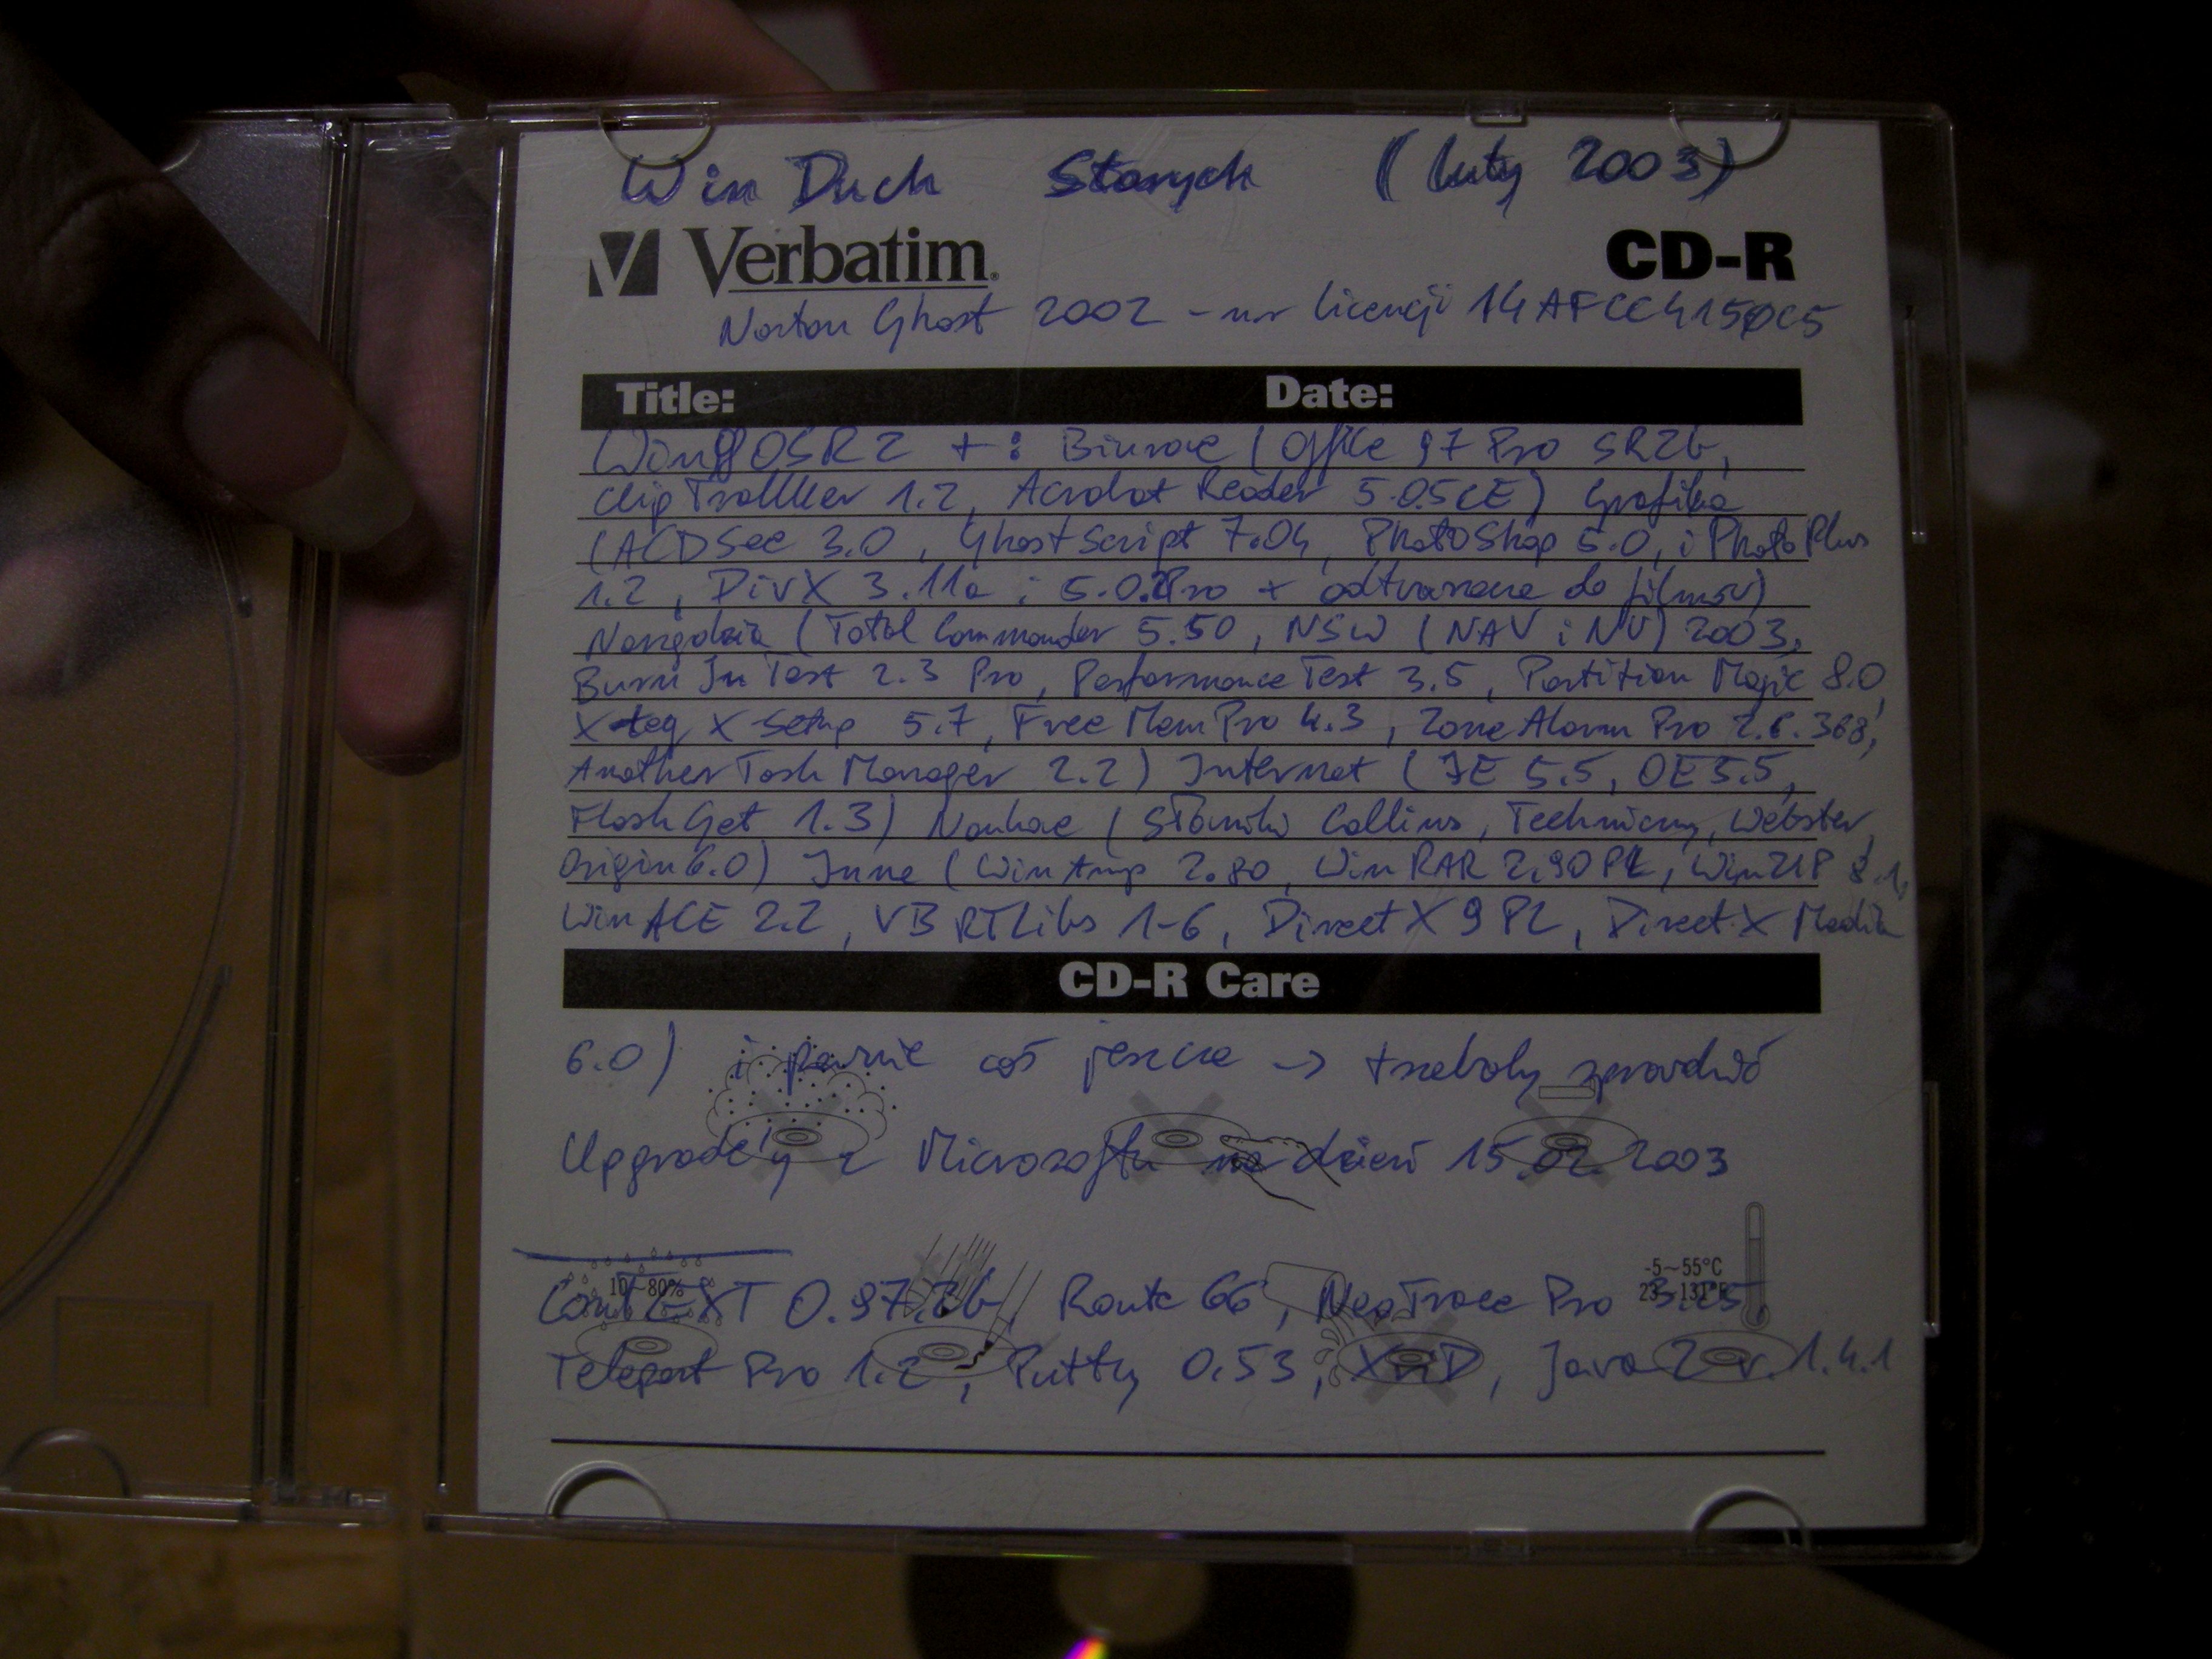 Win Duch Starych (luty 2003)
Verbatim. CD-R
Norton Ghost 2002 - nr licencji 14AFCC4150C5
Title: Date:
Win98 OSR2 +: Biurowe (Office 97 Pro SR2b,
ClipTrakker 1.2, Acrobat Reader 5.05CE) Grafika
(ACDSee 3.0, GhostScript 7.04, PhotoShop 5.0, i PhotoPlus
1.2, DivX 3.11a i 5.0.2Pro + odtwarzacze do filmów)
Narzędzia (Total Commander 5.50, NSW (NAV i NU) 2003,
Burn In Test 2.3 Pro, PerformanceTest 3.5, Partition Magic 8.0,
X-teq X-Setup 5.7, Free Mem Pro 4.3, Zone Alarm Pro 2.6.368,
Another Task Manager 2.2) Internet (IE 5.5, OE 5.5,
FlashGet 1.3) Naukowe (Słowniki Collins, Techniczny, Webster,
Origin 6.0) Inne (WinAmp 2.80, WinRAR 2.90PL, WinZIP 8.1,
WinACE 2.2, VB RTLibs 1-6, DirectX 9 PL, DirectX Media
CD-R Care
6.0) i pewnie coś jeszcze -> trzeba by sprawdzić
Upgrade'y z Microsoftu na dzień 15.02.2003
10~80%
-5~55°C
23~131°F
ConTEXT 0.97.2b, Route 66, NeoTrace Pro 3.25,
Teleport Pro 1.2, Putty 0.53, XviD, Java 2 v. 1.4.1